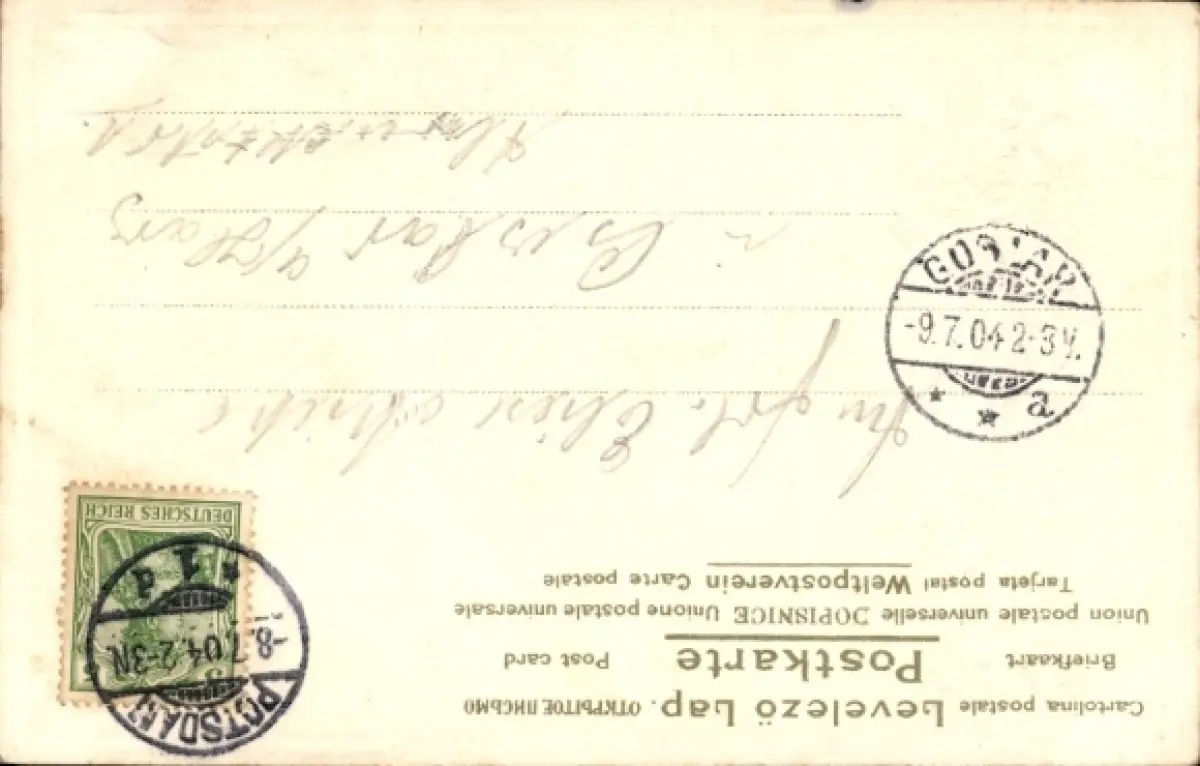 Cartolina postale Levelező Lap. ОТКРЫТОЕ ПИСЬМО
Briefkaart Postkarte Post card
Union postale universelle DOPISNICE Unione postale universale
Tarjeta postal Weltpostverein Carte postale
DEUTSCHES REICH
5
POTSDAM
-8.7.04.2-3N
* 1 d
Frl. Elise
Goslar a/Harz
GOSLAR
-9.7.04 2-3V.
* * a